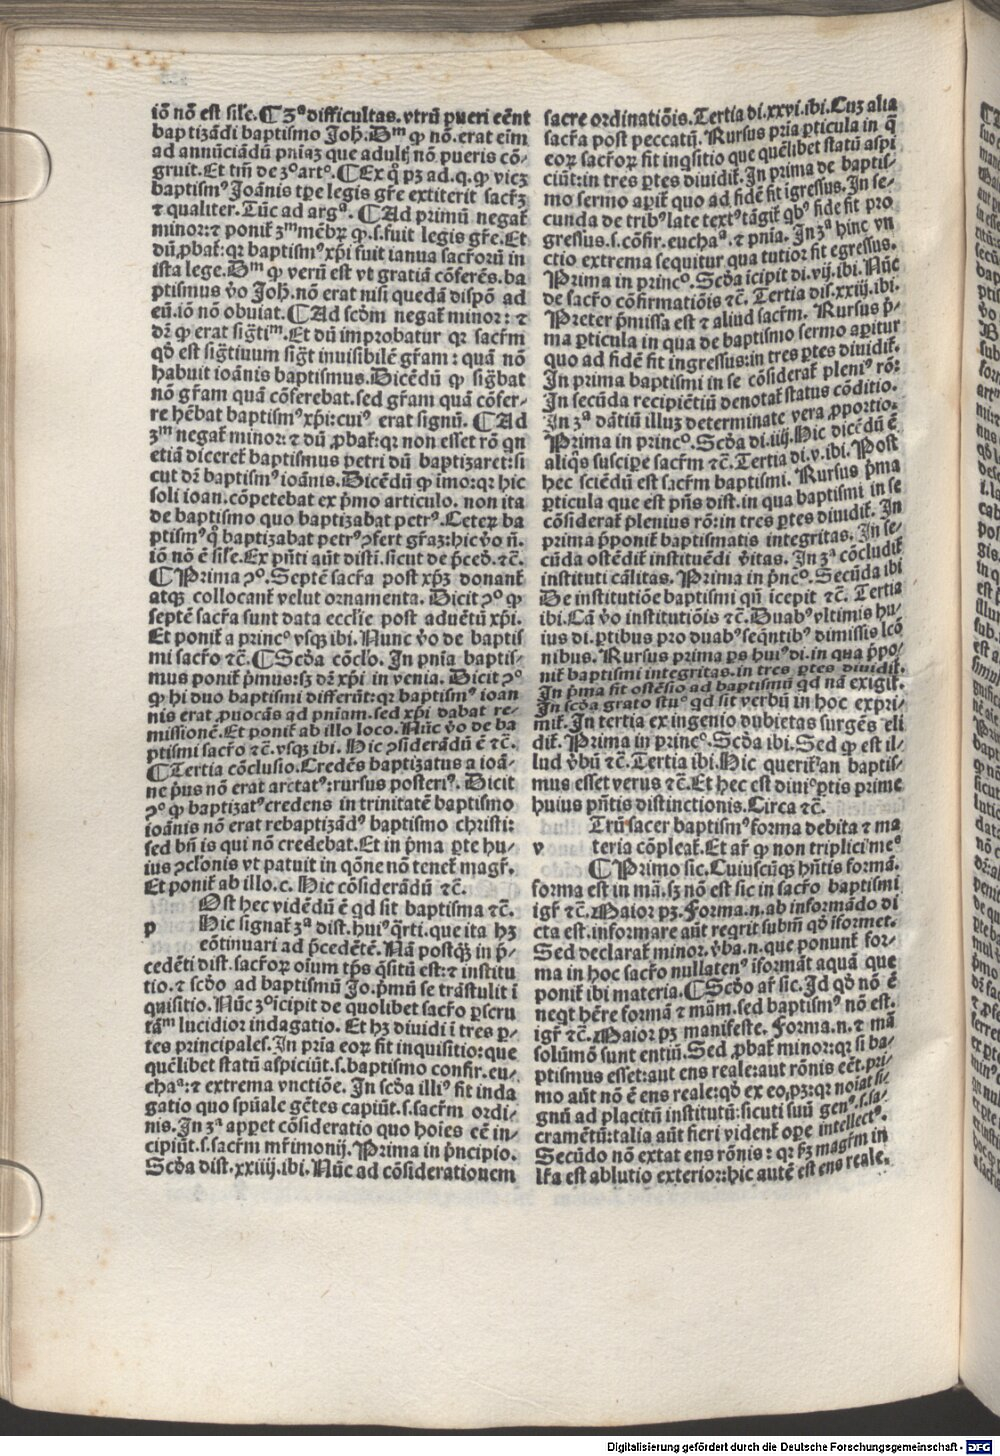 iō nō est sił̕e. ¶ 3ª difficultas. vtrū pueri eēnt
baptizādi baptismo Joħ. Dᵐ ꝙ nō. erat eīm
ad annūciādū pniaꝫ que adultꝭ nō pueris cō-
gruit. Et tm̄ de 3º artº. ¶ Ex q̊ pꝫ ad. q. ꝙ vicꝫ
baptismꝰ Joānis tꝑe legis gr̄e extiterit sacr̄ꝫ
⁊ qualiter. Tūc ad argª. ¶ Ad primū negat̄
minor: ⁊ ponit̄ 3ᵐ mēbꝝ ꝙ. s. fuit legis gr̄e. Et
dū ꝓbat̄: qꝛ baptismꝰ xp̄i fuit ianua sacr̄oꝝ in
ista lege. Dᵐ ꝙ verū est vt gratiā cōferēs. ba
ptismus v̄o Joħ. nō erat nisi quedā dispō ad
eū. iō nō obuiat. ¶ Ad scđm negat̄ minor: ⁊
dr̄ ꝙ erat sig̅tiᵐ. Et dū improbatur qꝛ sacr̄m
qđ est sig̅tiuum sig̅t inuisibilē gr̄am: quā nō
habuit ioānis baptismus. Dicēdū ꝙ sig̅bat
nō gr̄am quā cōferebat. sed gr̄am quā cōfer-
re hēbat baptismꝰ xp̄i: cuiꝰ erat signū. ¶ Ad
3ᵐ negat̄ minor: ⁊ dū ꝓbat̄: qꝛ non esset rō qn
etiā diceret̄ baptismus petri dū baptizaret: si
cut dr̄ baptismꝰ ioānis. Dicēdū ꝙ imo: qꝛ hic
soli ioan. cōpetebat ex p̄mo articulo. non ita
de baptismo quo baptizabat petrꝰ. Ceteꝝ ba
ptismꝰ q̊ baptizabat petrꝰ ꝯfert gr̄aꝫ: hic v̄o ñ.
iō nō ē sił̕e. Ex pn̄ti aūt disti. sicut de p̄ceđ. ⁊c̄.
¶ Prima ꝯº. Septē sacr̄a post xp̄ꝫ donant̄
atqꝫ collocant̄ velut ornamenta. Dicit ꝯº ꝙ
septē sacr̄a sunt data ecclīe post aduētū xp̄i.
Et ponit̄ a princº vsqꝫ ibi. Nunc v̄o de baptis
mi sacr̄o ⁊c̄. ¶ Scđa cōcło. In pnīa baptis-
mus ponit̄ p̄mus: sꝫ dr̄ xp̄i in venia. Dicit ꝯº
ꝙ hi duo baptismi differūt: qꝛ baptismꝰ ioan
nis erat ꝓuocās ad pniam. sed xp̄i dabat re-
missionē. Et ponit̄ ab illo loco. Nūc v̄o de ba
ptismi sacr̄o ⁊c̄. vsqꝫ ibi. Hic ꝯsiderādū ē ⁊c̄.
¶ Tertia cōclusio. Credēs baptizatus a ioā-
ne p̄us nō erat arctatꝰ: rursus posteriꝰ. Dicit
ꝯº ꝙ baptizatꝰ credens in trinitatē baptismo
ioānis nō erat rebaptizādꝰ baptismo christi:
sed bn̄ is qui nō credebat. Et in p̄ma ꝑte hu-
ius ꝯcłonis vt patuit in qōne nō tenet̄ magr̄.
Et ponit̄ ab illo. c. Hic cōsiderādū ⁊c̄.
Ost hec vidēdū ē qđ sit baptisma ⁊c̄.
p Hic signat̄ 3ª dist. huiꝰ q̄rti. que ita hꝫ
cōtinuari ad p̄cedētē. Nā postqꝫ in p̄-
cedēti dist. sacr̄oꝝ oīum tp̄s q̄situ̅ est: ⁊ institu
tio. ⁊ scđo ad baptismū Jo. p̄mū se trāstulit ī
quisitio. Nūc 3º īcipit de quolibet sacr̄o ꝑscru
tāᵐ lucidior indagatio. Et hꝫ diuidi ī tres ꝑ-
tes principales. In pria eoꝝ fit inquisitio: que
quēlibet statū aspiciūt. s. baptismo confir. eu-
chaª: ⁊ extrema vnctiōe. In scđa illiꝰ fit inda
gatio quo spūale gētes capiūt. s. sacr̄m ordi-
nis. In 3ª apꝑet cōsideratio quo hoīes eē in-
cipiūt. s. sacr̄m mr̄imonij. Prima in p̄ncipio.
Scđa dist. xxiiij. ibi. Nūc ad cōsiderationem
sacre ordinatiōis. Tertia di. xxvi. ibi. Cuꝫ alia
sacr̄a post peccatū. Rursus pria ꝑticula in q̄
eoꝝ sacr̄oꝝ fit inq̄sitio que quēlibet statū aspi
ciūt: in tres ꝑtes diuidit̄. In prima de baptis-
mo sermo aꝑit̄ quo ad fidē fit īgressus. In se-
cunda de tribꝰ late textꝰ tāgit̄ qbꝰ fide fit pro
gressus. s. cōfir. euchaª. ⁊ pnīa. In 3ª hinc vn
ctio extrema sequitur qua tutior fit egressus.
Prima in princº. Scđa īcipit di. vij. ibi. Nūc
de sacr̄o cōfirmatiōis ⁊c̄. Tertia dis. xxiij. ibi.
Preter p̄missa est ⁊ aliud sacr̄m. Rursus p̄-
ma ꝑticula in qua de baptismo sermo aꝑitur
quo ad fidē fit ingressus: in tres ꝑtes diuidit̄.
In prima baptismi in se cōsiderat̄ pleniꝰ rō:
In secūda recipiētiū denotat̄ status cōditio.
In 3ª dātiū illuꝫ determinate vera ꝓportio.
Prima in princº. Scđa di. iiij. Hic dicēdū ē
aliq̄s suscipe sacr̄m ⁊c̄. Tertia di. v. ibi. Post
hec sciēdū est sacr̄m baptismi. Rursus p̄ma
ꝑticula que est pn̄s dist. in qua baptismi in se
cōsiderat̄ plenius rō: in tres ꝑtes diuidit̄. In
prima p̄ponit̄ baptismatis integritas. In se-
cūda ostēdit̄ instituēdi v̄itas. In 3ª cōcludit̄
instituti cālitas. Prima in p̄ncº. Secūda ibi
De institutiōe baptismi qn̄ icepit ⁊c̄. Tertia
ibi. Cā v̄o institutiōis ⁊c̄. Duabꝰ vltimis hu-
ius di. ꝑtibus pro duabꝰ seq̄ntibꝰ dimissis lcō
nibus. Rursus prima ꝑs huiꝰ di. in qua p̄po-
nit̄ baptismi integritas. in tres ꝑtes diuidit̄.
In p̄ma fit ostēsio ad baptismū qđ nā exigit̄.
In scđa grato stuº qđ sit verbū in hoc expri-
mit̄. In tertia ex ingenio dubietas surgēs eli
dit̄. Prima in princº. Scđa ibi. Sed ꝙ est il-
lud v̄bū ⁊c̄. Tertia ibi. Hic querit̄ an baptis-
mus esset verus ⁊c̄. Et hec est diuiº ꝑtis prime
huius pn̄tis distinctionis. Circa ⁊c̄.
Trū sacer baptismꝰ forma debita ⁊ ma
v teria cōpleat̄. Et ar̄ ꝙ non triplici meˢ
¶ Primo sic. Cuiuscūqꝫ hn̄tis formā.
forma est in mā. sꝫ nō est sic in sacr̄o baptismi
igr̄ ⁊c̄. Maior pꝫ. Forma. n. ab informādo di
cta est. informare aūt reqrit subm̄ qđ iformet.
Sed declarat̄ minor. v̄ba. n. que ponunt̄ for-
ma in hoc sacr̄o nullatenꝰ iformāt aquā que
ponit̄ ibi materia. ¶ Scđo ar̄ sic. Id qđ nō ē
neqt hēre formā ⁊ mām. sed baptismꝰ nō est.
igr̄ ⁊c̄. Maior pꝫ manifeste. Forma. n. ⁊ mā
solūmō sunt entiū. Sed ꝓbat̄ minor: qꝛ si ba-
ptismus esset: aut ens reale: aut rōnis eēt. pri-
mo aūt nō ē ens reale: qđ ex eo. pꝫ: qꝛ noiat si-
gnū ad placitū institutū: sicuti suū genꝰ. s. sa-
cramētū: talia aūt fieri vident̄ oꝑe intellectꝰ.
Secūdo nō extat ens rōnis: qꝛ ꝑꝫ magr̄m in
lr̄a est ablutio exterior: hic autē est ens reale.
Digitalisierung gefördert durch die Deutsche Forschungsgemeinschaft - DFG